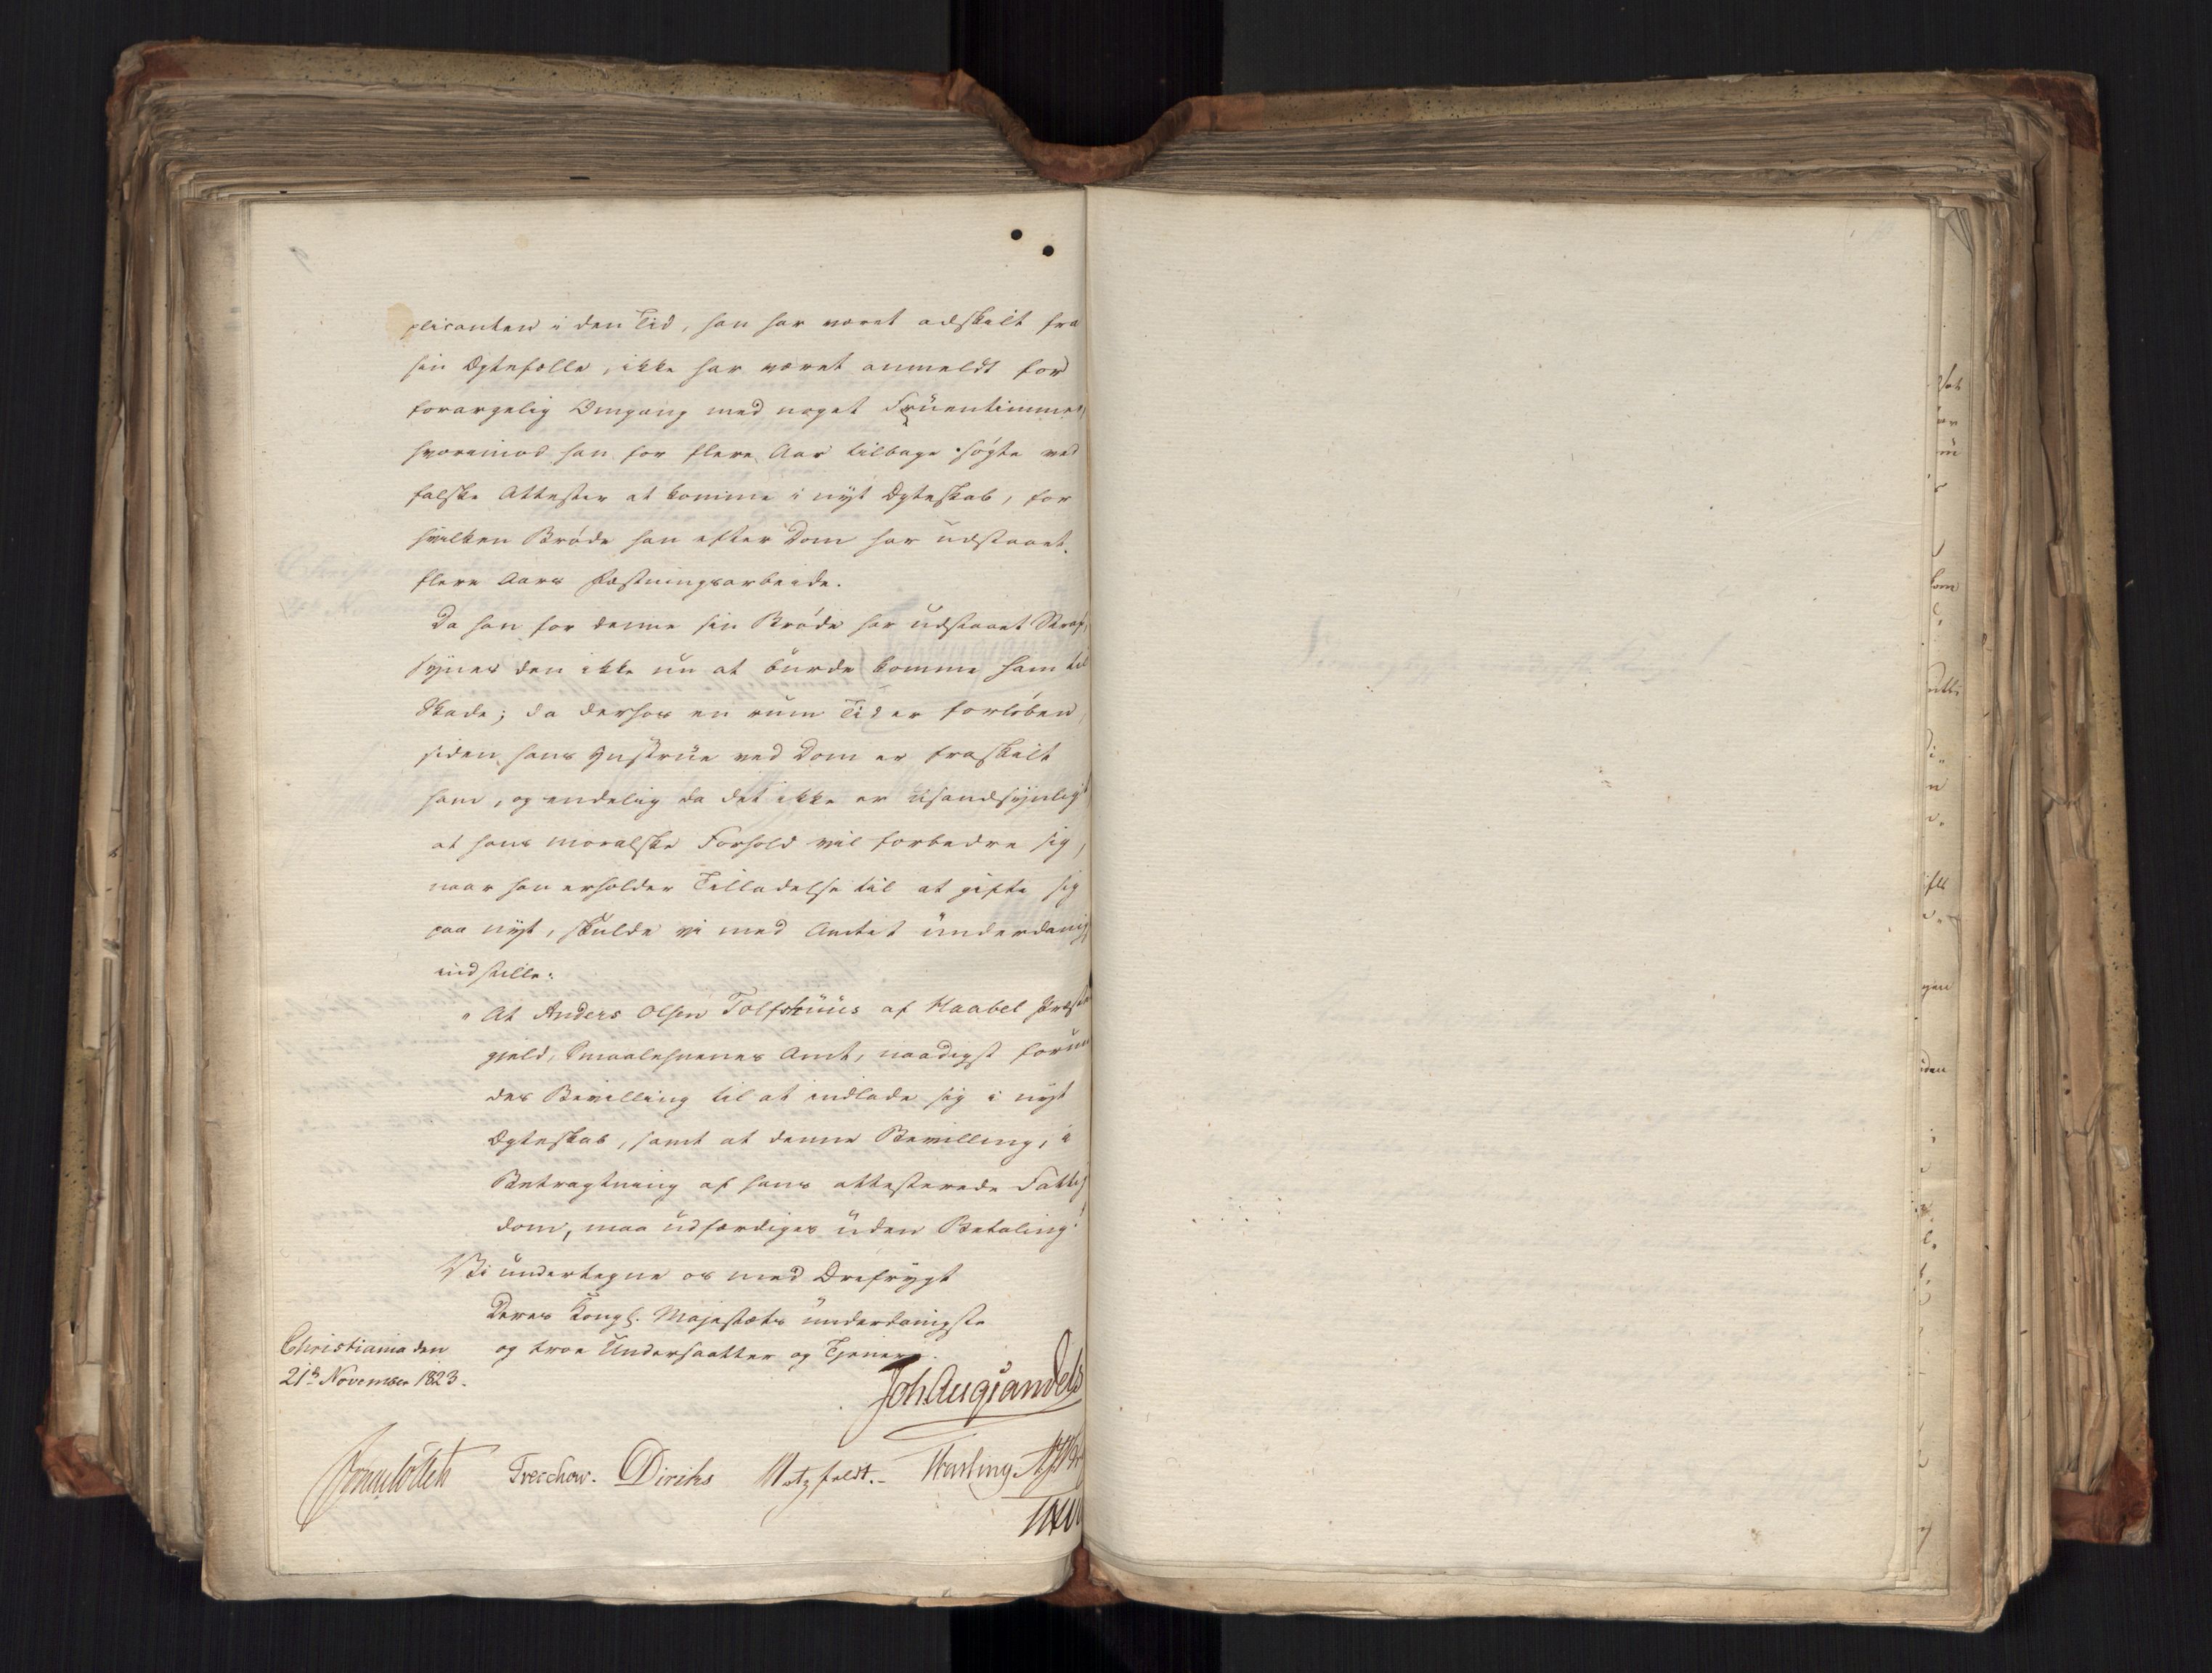 plicanten i den Tid, han har været adskilt fra
sin Ægtefælle, ikke har været anmeldt for
forargelig Omgang med noget Fruentimmer,
hvorimod han for flere Aar tilbage søgte ved
falske Attester at komme i nyt Ægteskab, for
hvilken Brøde han efter Dom har udstaaet
flere Aars Fæstningsarbeide.
Da han for denne sin Brøde har udstaaet Straf,
synes den ikke nu at burde komme ham til
Skade; da derhos en rum Tid er forløben,
siden hans Hustrue ved Dom er fraskilt
ham, og endelig da det ikke er usandsynligt
at hans moralske Forhold vil forbedre sig,
naar han erholder Tilladelse til at gifte sig
paa nyt, skulde vi med Amtet underdanigst
indstille:
"At Anders Olsen Tolfshuus af Haabel Præste
gjeld, Smaalehnenes Amt, naadigst forun
des Bevilling til at indlade sig i nyt
Ægteskab, samt at denne Bevilling, i
Betragtning af hans attesterede Fattig
dom, maa udfærdiges uden Betaling"
Vi undertegne os med Ærefrygt
Deres Kongl. Majestæts underdanigste
og troe Undersaatter og Tjenere.
Christiania den
21de November 1823.
Joh. Aug. Sandels
Sommerfeldt Treschow. Diriks Motzfeldt. Fasting